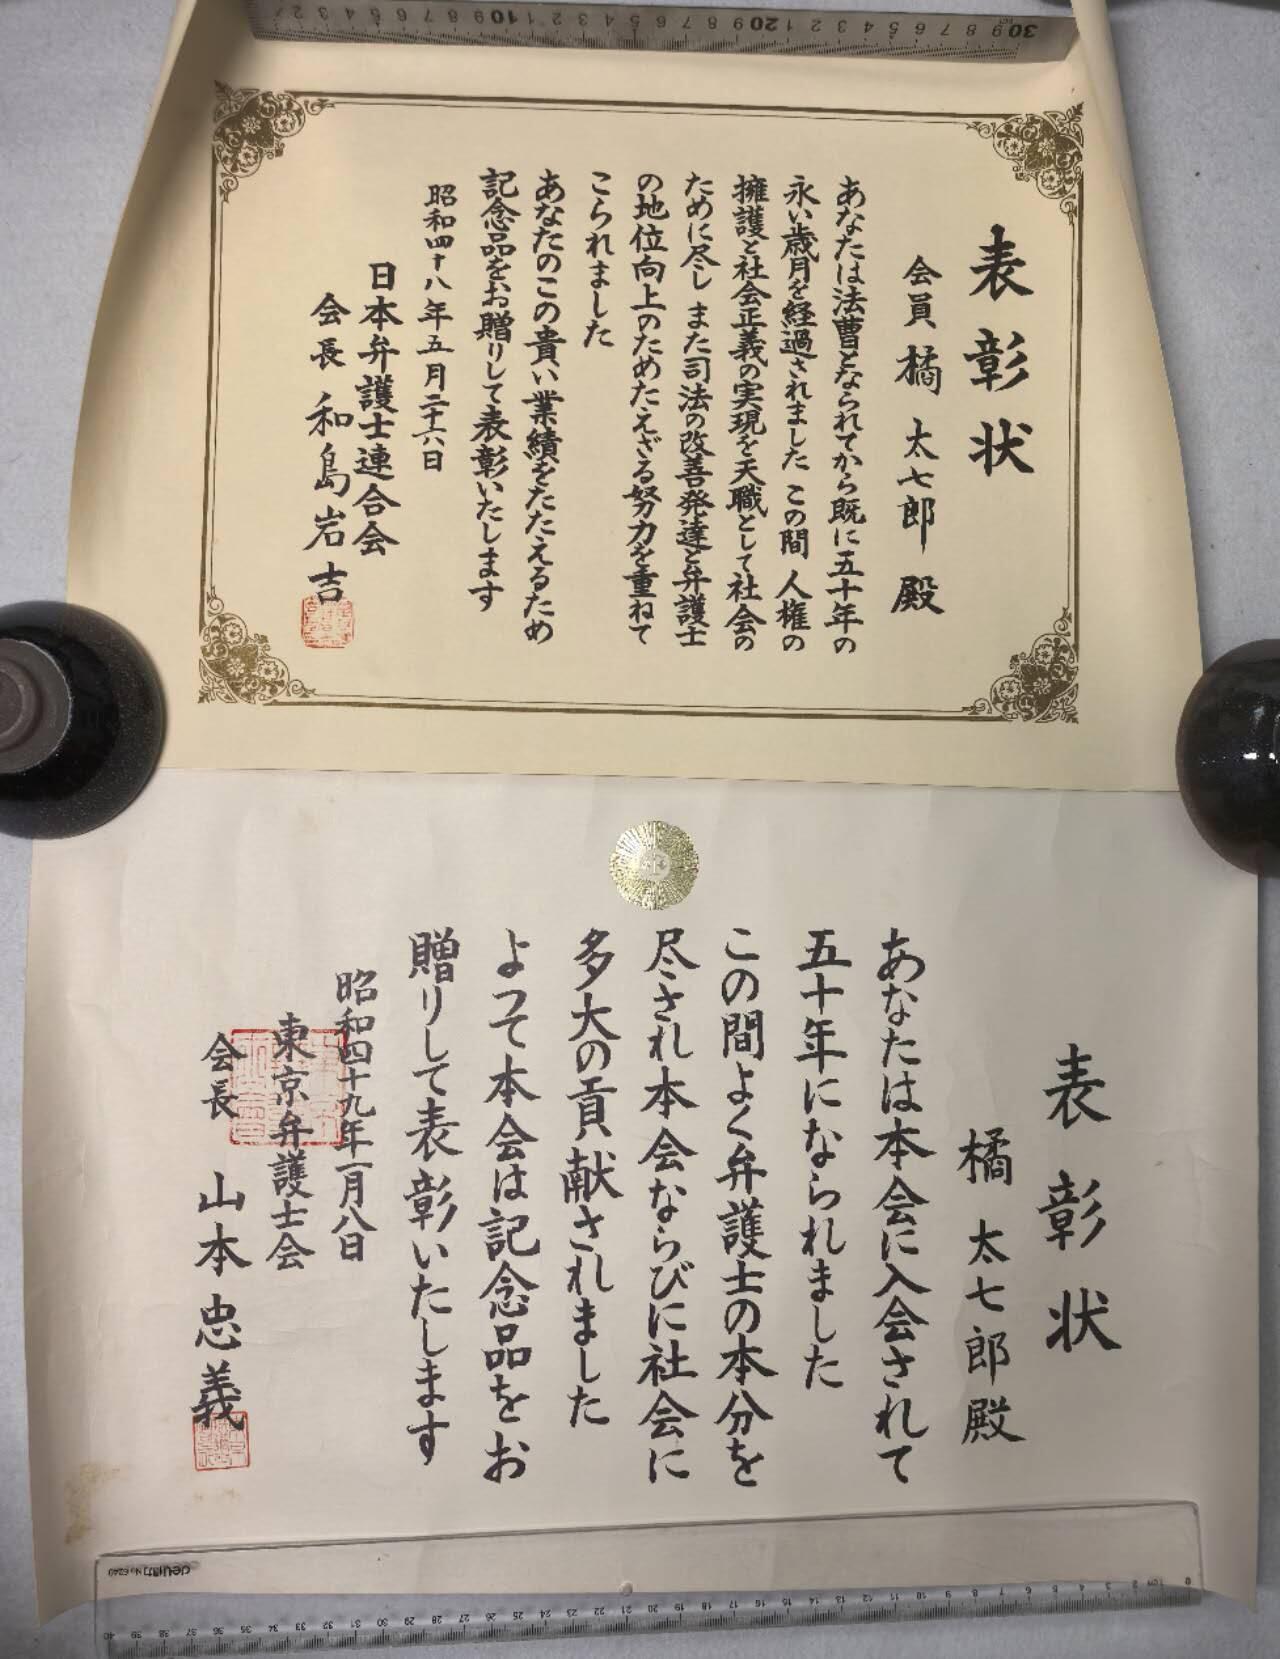 表彰状
会員 橘 太七郎 殿
あなたは法曹となられてから既に五十年の
永い歳月を経過されました この間 人権の
擁護と社会正義の実現を天職として社会の
ために尽し また司法の改善発達と弁護士
の地位向上のためたえざる努力を重ねて
こられました
あなたのこの貴い業績をたたえるため
記念品をお贈りして表彰いたします
昭和四十八年五月二十六日
日本弁護士連合会
会長 和島岩吉
表彰状
橘 太七郎殿
あなたは本会に入会されて
五十年になられました
この間よく弁護士の本分を
尽され本会ならびに社会に
多大の貢献されました
よつて本会は記念品をお
贈りして表彰いたします
昭和四十九年一月八日
東京弁護士会
会長 山本忠義
deli No.6240
0 1 2 3 4 5 6 7 8 9 10 11 12 13 14 15 16 17 18 19 20 21 22 23 24 25 26 27 28 29 30 31 32 33 34 35 36 37 38 39 40